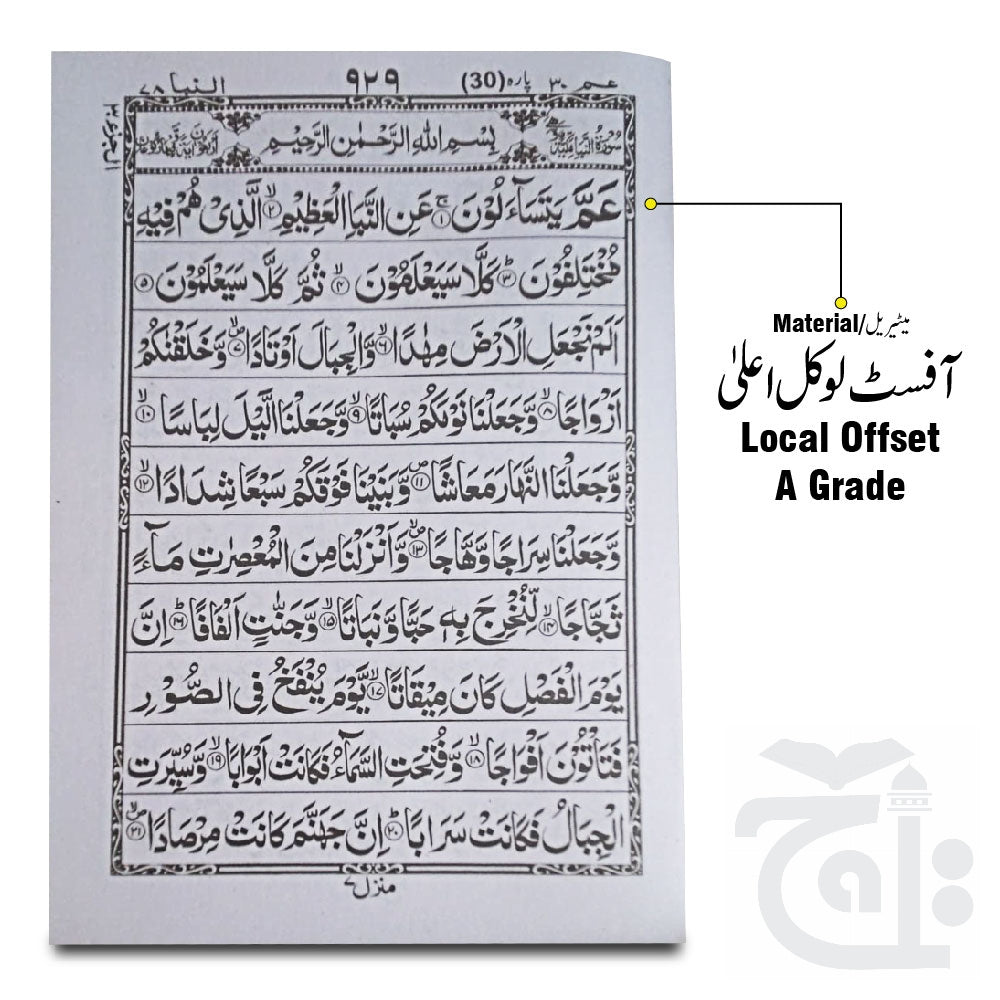 عم ٣٠ پارہ (30) ٩٢٩ النبا ٧٨
بِسْمِ اللهِ الرَّحْمٰنِ الرَّحِيْمِ
عَمَّ يَتَسَآءَلُوْنَ ۚ﴿۱﴾ عَنِ النَّبَاِ الْعَظِيْمِ ۙ﴿۲﴾ الَّذِىْ هُمْ فِيْهِ
مُخْتَلِفُوْنَ ؕ﴿۳﴾ كَلَّا سَيَعْلَمُوْنَ ۙ﴿۴﴾ ثُمَّ كَلَّا سَيَعْلَمُوْنَ ﴿۵﴾
اَلَمْ نَجْعَلِ الْاَرْضَ مِهٰدًا ۙ﴿۶﴾ وَّالْجِبَالَ اَوْتَادًا ۪ۙ﴿۷﴾ وَّخَلَقْنٰكُمْ
اَزْوَاجًا ۙ﴿۸﴾ وَّجَعَلْنَا نَوْمَكُمْ سُبَاتًا ۙ﴿۹﴾ وَّجَعَلْنَا الَّيْلَ لِبَاسًا ۙ﴿۱۰﴾
وَّجَعَلْنَا النَّهَارَ مَعَاشًا ۪﴿۱۱﴾ وَّبَنَيْنَا فَوْقَكُمْ سَبْعًا شِدَادًا ۙ﴿۱۲﴾
وَّجَعَلْنَا سِرَاجًا وَّهَّاجًا ۪ۙ﴿۱۳﴾ وَّاَنْزَلْنَا مِنَ الْمُعْصِرٰتِ مَآءً
ثَجَّاجًا ۙ﴿۱۴﴾ لِّنُخْرِجَ بِهٖ حَبًّا وَّنَبَاتًا ۙ﴿۱۵﴾ وَّجَنّٰتٍ اَلْفَافًا ؕ﴿۱۶﴾ اِنَّ
يَوْمَ الْفَصْلِ كَانَ مِيْقَاتًا ۙ﴿۱۷﴾ يَّوْمَ يُنْفَخُ فِى الصُّوْرِ
فَتَاْتُوْنَ اَفْوَاجًا ۙ﴿۱۸﴾ وَّفُتِحَتِ السَّمَآءُ فَكَانَتْ اَبْوَابًا ۙ﴿۱۹﴾ وَّسُيِّرَتِ
الْجِبَالُ فَكَانَتْ سَرَابًا ؕ﴿۲۰﴾ اِنَّ جَهَنَّمَ كَانَتْ مِرْصَادًا ۪ۙ﴿۲۱﴾
منزل ٧
Material/میٹیریل
آفسٹ لوکل اعلیٰ
Local Offset
A Grade